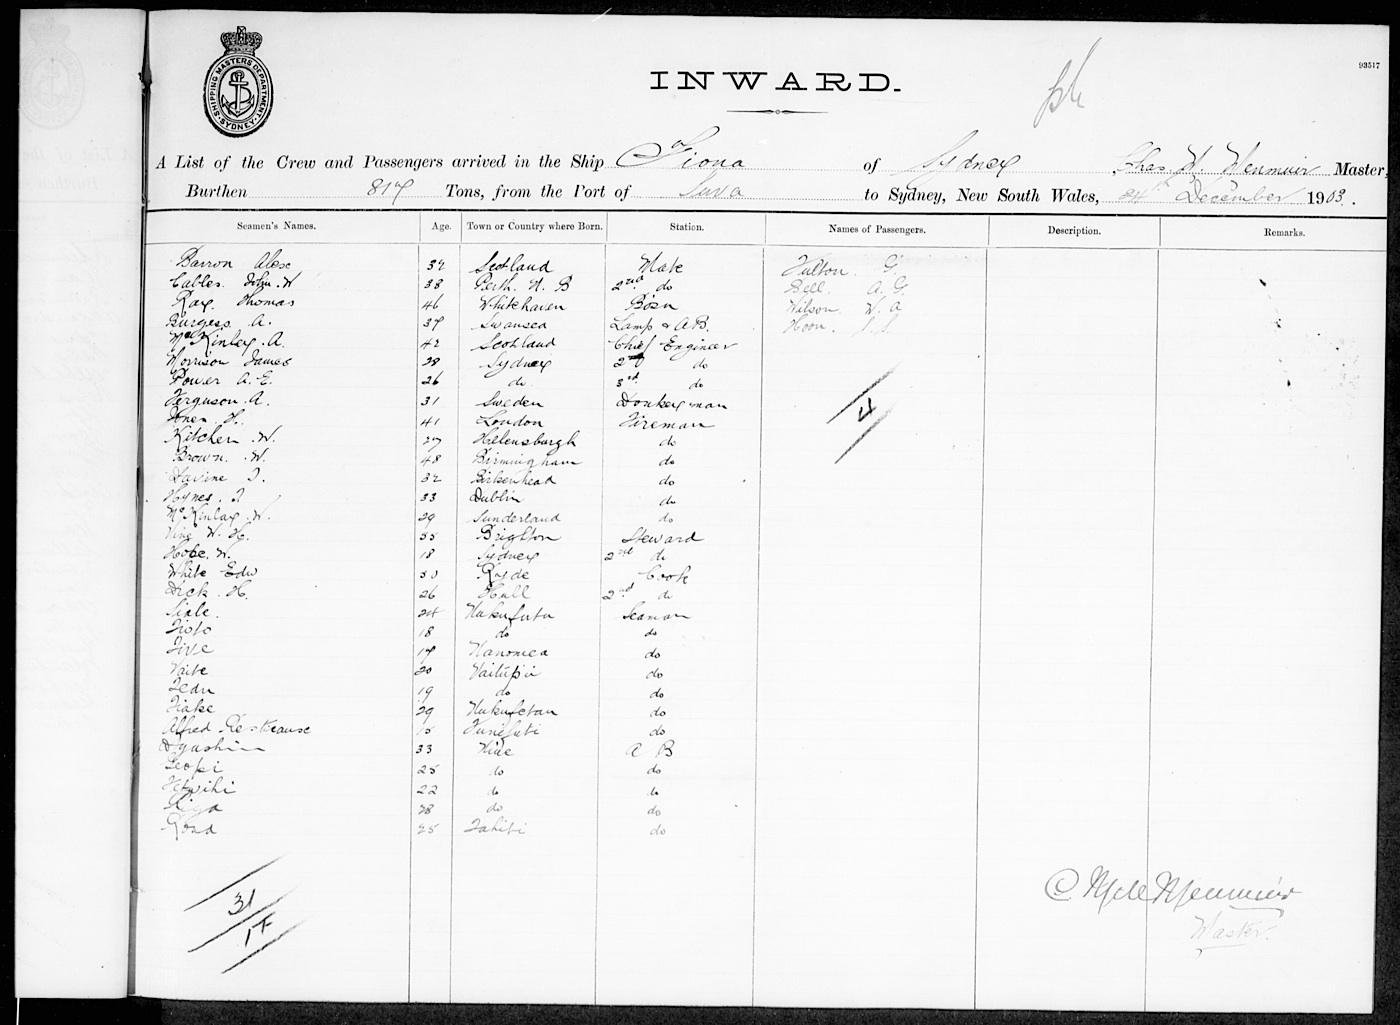 SHIPPING MASTERS DEPARTMENT SYDNEY
93517
INWARD.
A List of the Crew and Passengers arrived in the Ship Fiona of Sydney Chas W Master,
Burthen 817 Tons, from the Port of Suva to Sydney, New South Wales, 24th December 1903.
Seamen's Names. Age. Town or Country where Born. Station. Names of Passengers. Description. Remarks.
Barron Alex 32 Scotland Mate Fulton G.
Cables John W 38 Perth N. B 2nd do Bell A. G.
Ray Thomas 46 Whitehaven Bosn Wilson W. A
Burgess A. 37 Swansea Lamp & A B. Hoon
McKinley A. 42 Scotland Chief Engineer
Morrison James 28 Sydney 2nd do
Power A. E. 26 do 3rd do
Ferguson A. 31 Sweden Donkeyman
4
Jones H. 41 London Fireman
Kitchen W. 27 Helensburgh do
Brown W. 48 Birmingham do
Davine J. 32 Birkenhead do
Hynes J 33 Dublin do
McKinlay W. 29 Sunderland do
King W. H. 35 Brighton Steward
Hobe W. 18 Sydney 2nd do
White Edw 30 Ryde Cook
Dick H. 26 Hull 2nd do
Siale. 24 Seaman
18 do do
17 Nanomea do
Vaite 20 Vaitupu do
19 do do
Tiake 29 Nukufetau do
Alfred 15 Funifuti do
33 Niue A B
Leopi 25 do do
22 do do
28 do do
25 Tahiti do
31
17
Master.